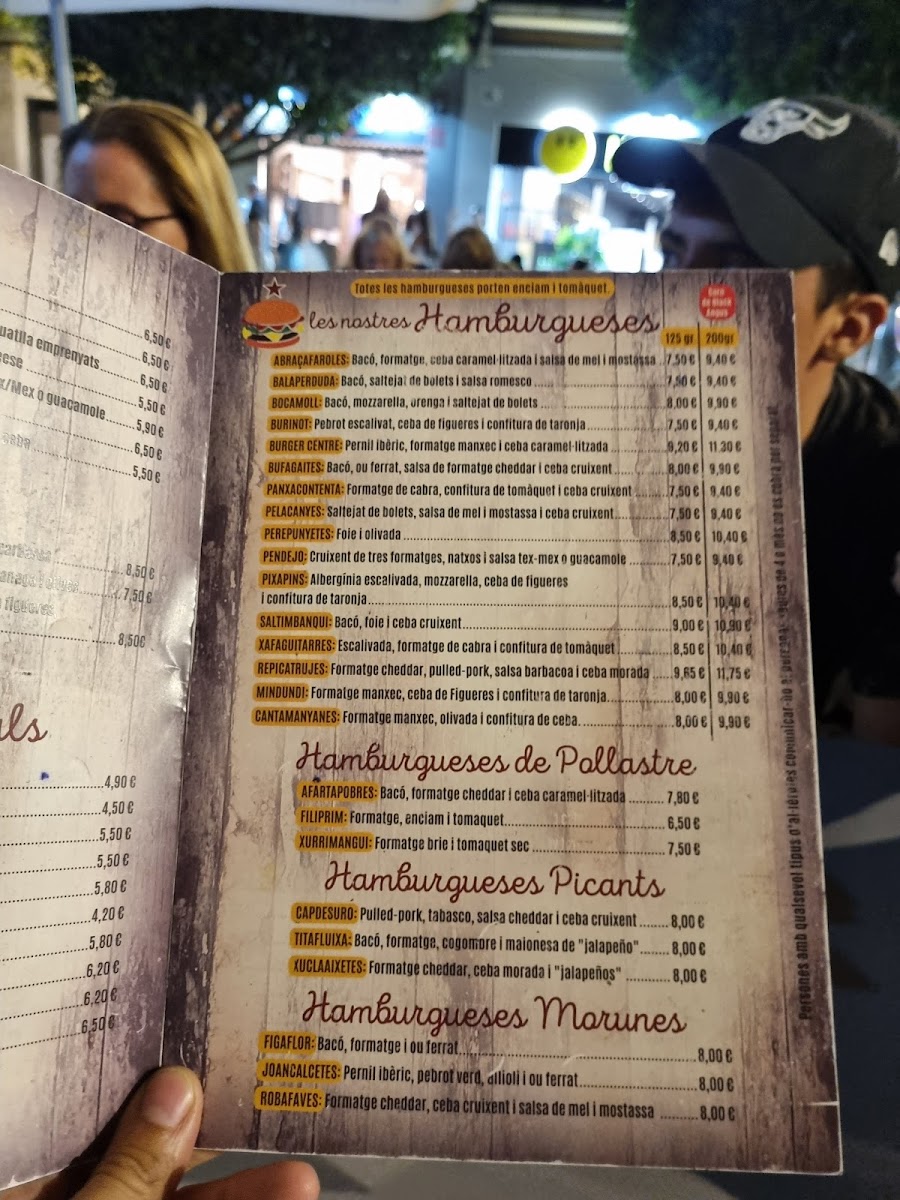 6,50 €
uatlla emprenyats 6,50 €
6,50 €
5,50 €
x/Mex o guacamole 5,90 €
6,50 €
5,50 €
8,50 €
7,50 €
8,50€
als
4,90 €
4,50 €
5,50 €
5,50 €
5,80 €
4,20 €
5,80 €
6,20 €
6,20 €
6,50 €
Totes les hamburgueses porten enciam i tomàquet.
les nostres Hamburgueses
Carn de Black Angus
125 gr 200gr
ABRAÇAFAROLES: Bacó, formatge, ceba caramel·litzada i salsa de mel i mostassa 7,50 € 9,40 €
BALAPERDUDA: Bacó, saltejat de bolets i salsa romesco 7,50 € 9,40 €
BOCAMOLL: Bacó, mozzarella, orenga i saltejat de bolets 8,00 € 9,90 €
BURINOT: Pebrot escalivat, ceba de figueres i confitura de taronja 7,50 € 9,40 €
BURGER CENTRE: Pernil ibèric, formatge manxec i ceba caramel·litzada 9,20 € 11.30 €
BUFAGAITES: Bacó, ou ferrat, salsa de formatge cheddar i ceba cruixent 8,00 € 9,90 €
PANXACONTENTA: Formatge de cabra, confitura de tomàquet i ceba cruixent 7,50 € 9,40 €
PELACANYES: Saltejat de bolets, salsa de mel i mostassa i ceba cruixent 7,50 € 9,40 €
PEREPUNYETES: Foie i olivada 8,50 € 10,40 €
PENDEJO: Cruixent de tres formatges, natxos i salsa tex-mex o guacamole 7,50 € 9,40 €
PIXAPINS: Albergínia escalivada, mozzarella, ceba de figueres
i confitura de taronja 8,50 € 10,40 €
SALTIMBANQUI: Bacó, foie i ceba cruixent 9,00 € 10,90 €
XAFAGUITARRES: Escalivada, formatge de cabra i confitura de tomàquet 8,50 € 10,40 €
REPICATRUJES: Formatge cheddar, pulled-pork, salsa barbacoa i ceba morada 9,65 € 11,75 €
MINDUNDI: Formatge manxec, ceba de Figueres i confitura de taronja 8,00 € 9,90 €
CANTAMANYANES: Formatge manxec, olivada i confitura de ceba. 8,00 € 9,90 €
Hamburgueses de Pollastre
AFARTAPOBRES: Bacó, formatge cheddar i ceba caramel·litzada 7,80 €
FILIPRIM: Formatge, enciam i tomaquet 6,50 €
XURRIMANGUI: Formatge brie i tomaquet sec 7,50 €
Hamburgueses Picants
CAPDESURO: Pulled-pork, tabasco, salsa cheddar i ceba cruixent 8,00 €
TITAFLUIXA: Bacó, formatge, cogombre i maionesa de "jalapeño" 8,00 €
XUCLAAIXETES: Formatge cheddar, ceba morada i "jalapeños" 8,00 €
Hamburgueses Morunes
FIGAFLOR: Bacó, formatge i ou ferrat 8,00 €
JOANCALCETES: Pernil ibèric, pebrot verd, allioli i ou ferrat 8,00 €
ROBAFAVES: Formatge cheddar, ceba cruixent i salsa de mel i mostassa 8,00 €
Persones amb qualsevol tipus d'al·lèrgies comunicar-ho al personal